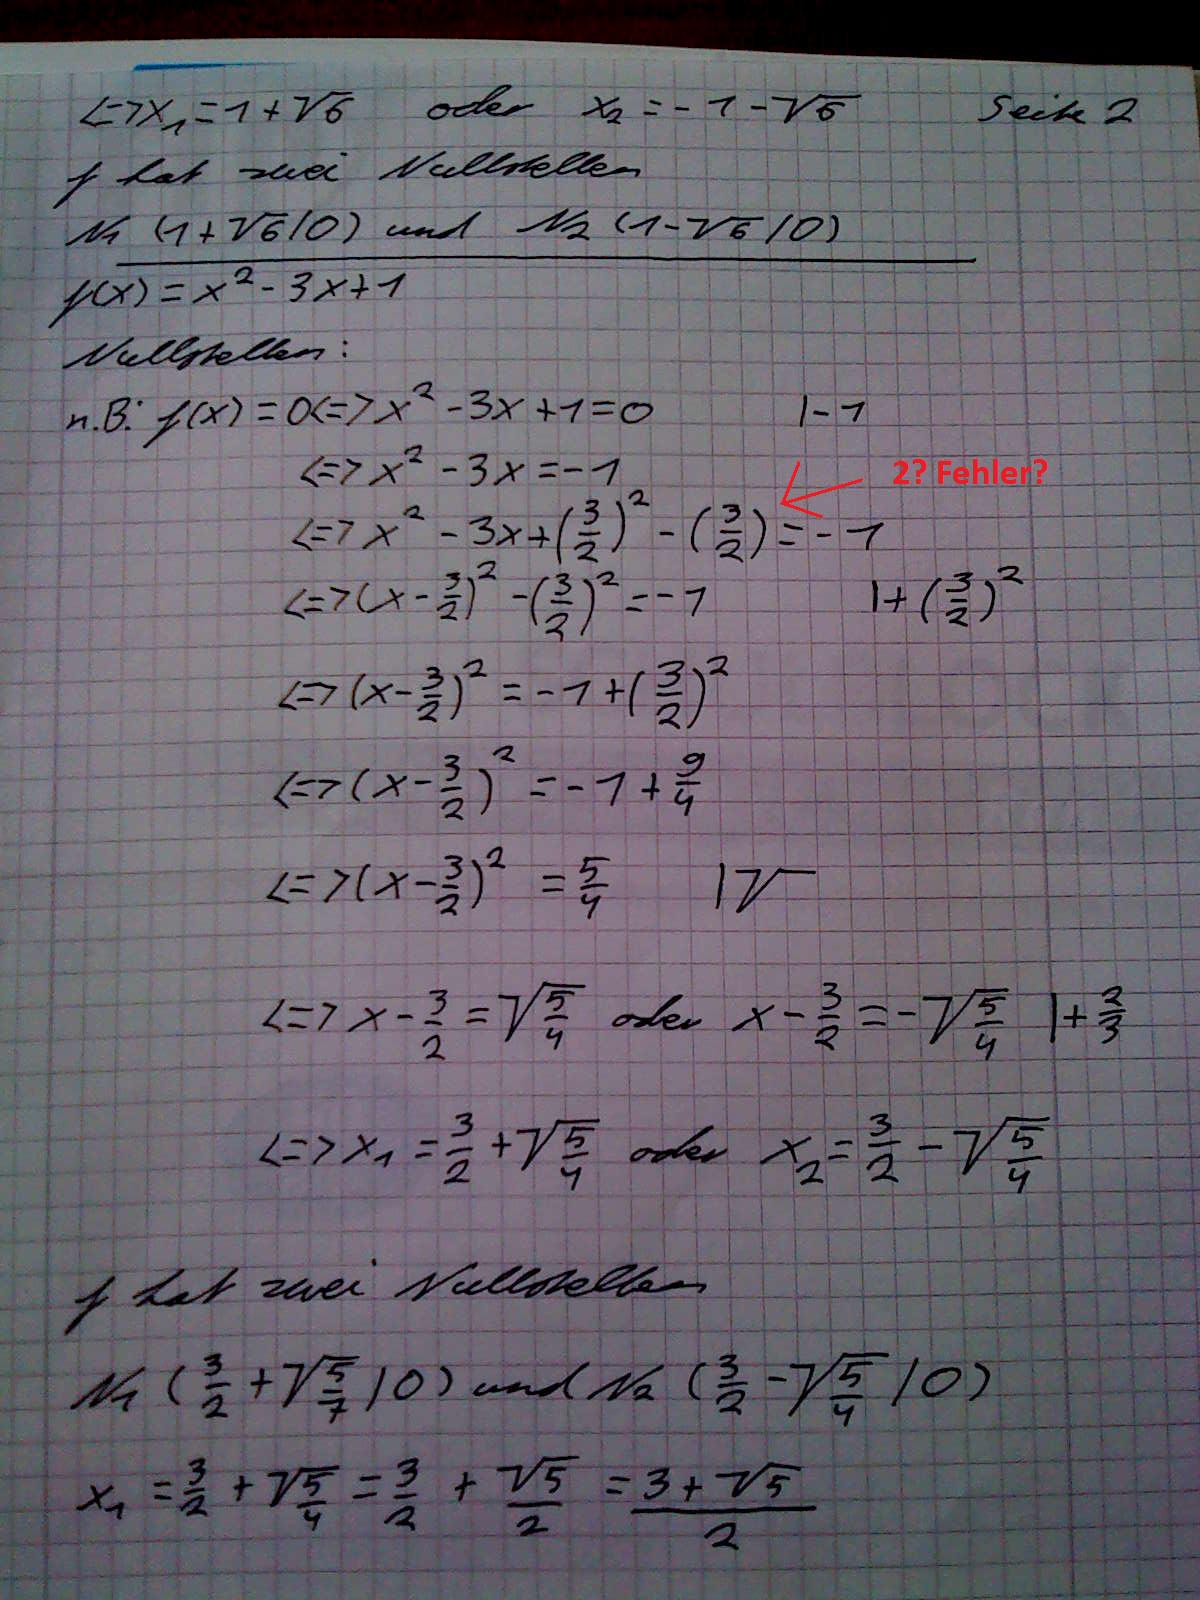 <=> x₁ = 1 + √6 oder x₂ = - 1 - √6 Seite 2
f hat zwei Nullstellen
N₁ (1+√6/0) und N₂ (1-√6/0)
f(x) = x² - 3x + 1
Nullstellen:
n.B: f(x) = 0 <=> x² - 3x + 1 = 0 |- 1
<=> x² - 3x = - 1
2? Fehler?
<=> x² - 3x + (3/2)² - (3/2) = - 1
<=> (x - 3/2)² - (3/2)² = - 1 |+ (3/2)²
<=> (x - 3/2)² = - 1 + (3/2)²
<=> (x - 3/2)² = - 1 + 9/4
<=> (x - 3/2)² = 5/4 |√
<=> x - 3/2 = √5/4 oder x - 3/2 = - √5/4 |+ 2/3
<=> x₁ = 3/2 + √5/4 oder x₂ = 3/2 - √5/4
f hat zwei Nullstellen
N₁ (3/2 + √5/7 /0) und N₂ (3/2 - √5/4 /0)
x₁ = 3/2 + √5/4 = 3/2 + √5/2 = 3 + √5/2